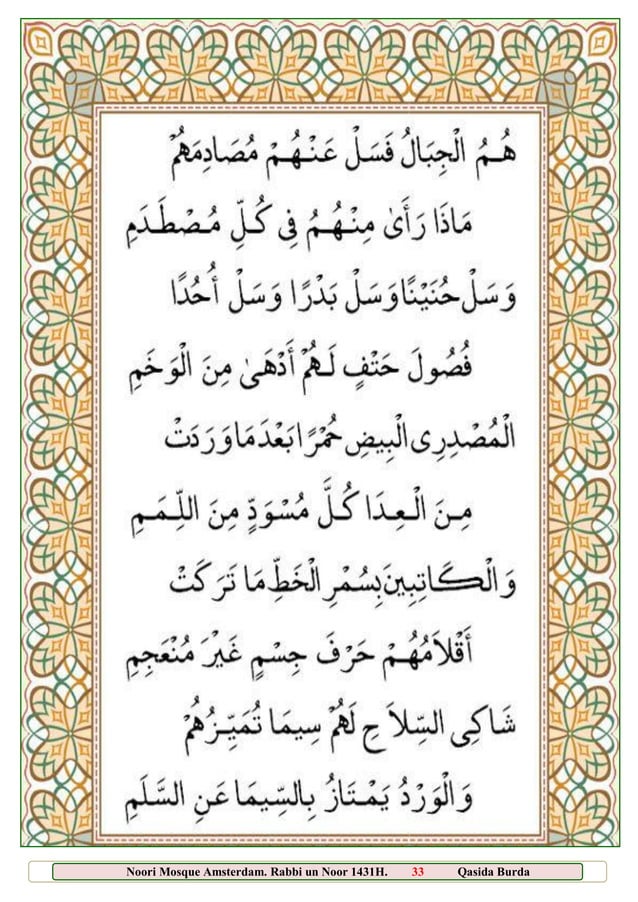 هُمُ الْجِبَالُ فَسَلْ عَنْهُمْ مُصَادِمَهُمْ
مَاذَا رَأَىٰ مِنْهُمُ فِى كُلِّ مُصْطَدَمِ
وَسَلْ حُنَيْنًا وَسَلْ بَدْرًا وَسَلْ أُحُدًا
فُصُولَ حَتْفٍ لَهُمْ أَدْهَىٰ مِنَ الْوَخَمِ
الْمُصْدِرِى الْبِيضِ حُمْرًا بَعْدَ مَا وَرَدَتْ
مِنَ الْعِدَا كُلَّ مُسْوَدٍّ مِنَ اللِّمَمِ
وَالْكَاتِبِينَ بِسُمْرِ الْخَطِّ مَا تَرَكَتْ
أَقْلاَمُهُمْ حَرْفَ جِسْمٍ غَيْرَ مُنْعَجِمِ
شَاكِى السِّلاَحِ لَهُمْ سِيمَا تُمَيِّزُهُمْ
وَالْوَرْدُ يَمْتَازُ بِالسِّيمَا عَنِ السَّلَمِ
Noori Mosque Amsterdam. Rabbi un Noor 1431H. 33 Qasida Burda